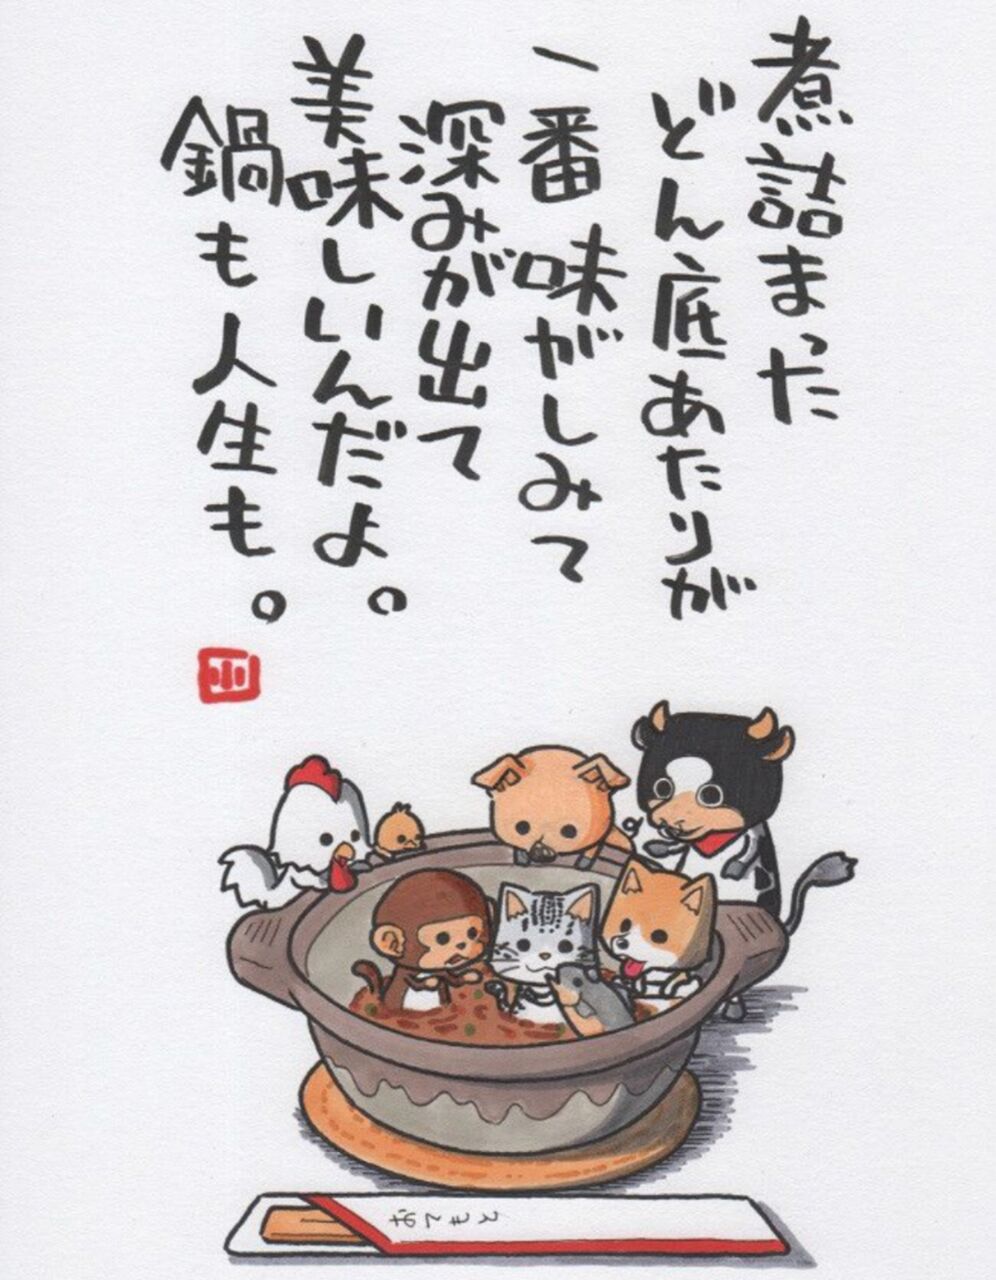 煮詰まった
どん底あたりが
一番味がしみて
深みが出て
美味しいんだよ。
鍋も人生も。
おてもと